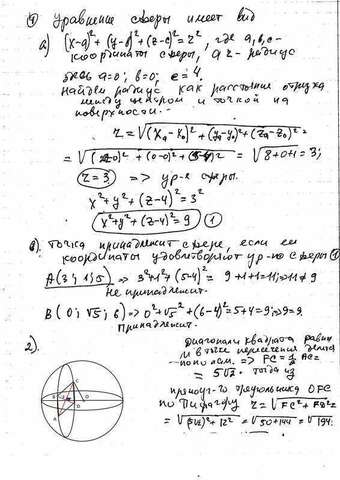 ① Уравнение сферы имеет вид
а) (x-a)²+(y-b)²+(z-c)²=r², где a,b,c-
координаты сферы, а r- радиус
здесь a=0; b=0; c=4.
Найдем радиус как расстояние отрезка
между центром и точкой на
поверхности.
= √8+0+1 = 3;
r=3 => ур-е сферы.
x²+y²+(z-4)²=3²
x²+y²+(z-4)²=9 ①
в) точка принадлежит сфере, если ее
координаты удовлетворяют ур-ю сферы ①
A(3; 1; 5) => 3²+1²+(5-4)²= 9+1+1=11; => 11≠9
Не принадлежит.
B(0; √5; 6) => 0²+√5²+(6-4)²=5+4=9; => 9=9.
Принадлежит.
2).
диагонали квадрата равны
и в точке пересечения делятся
пополам. => FC = ½ AC =
= 5√2. тогда из
прямоуг-го треугольника OFC
по Пифагору
= √(5√2)²+12² = √50+144 = √194;